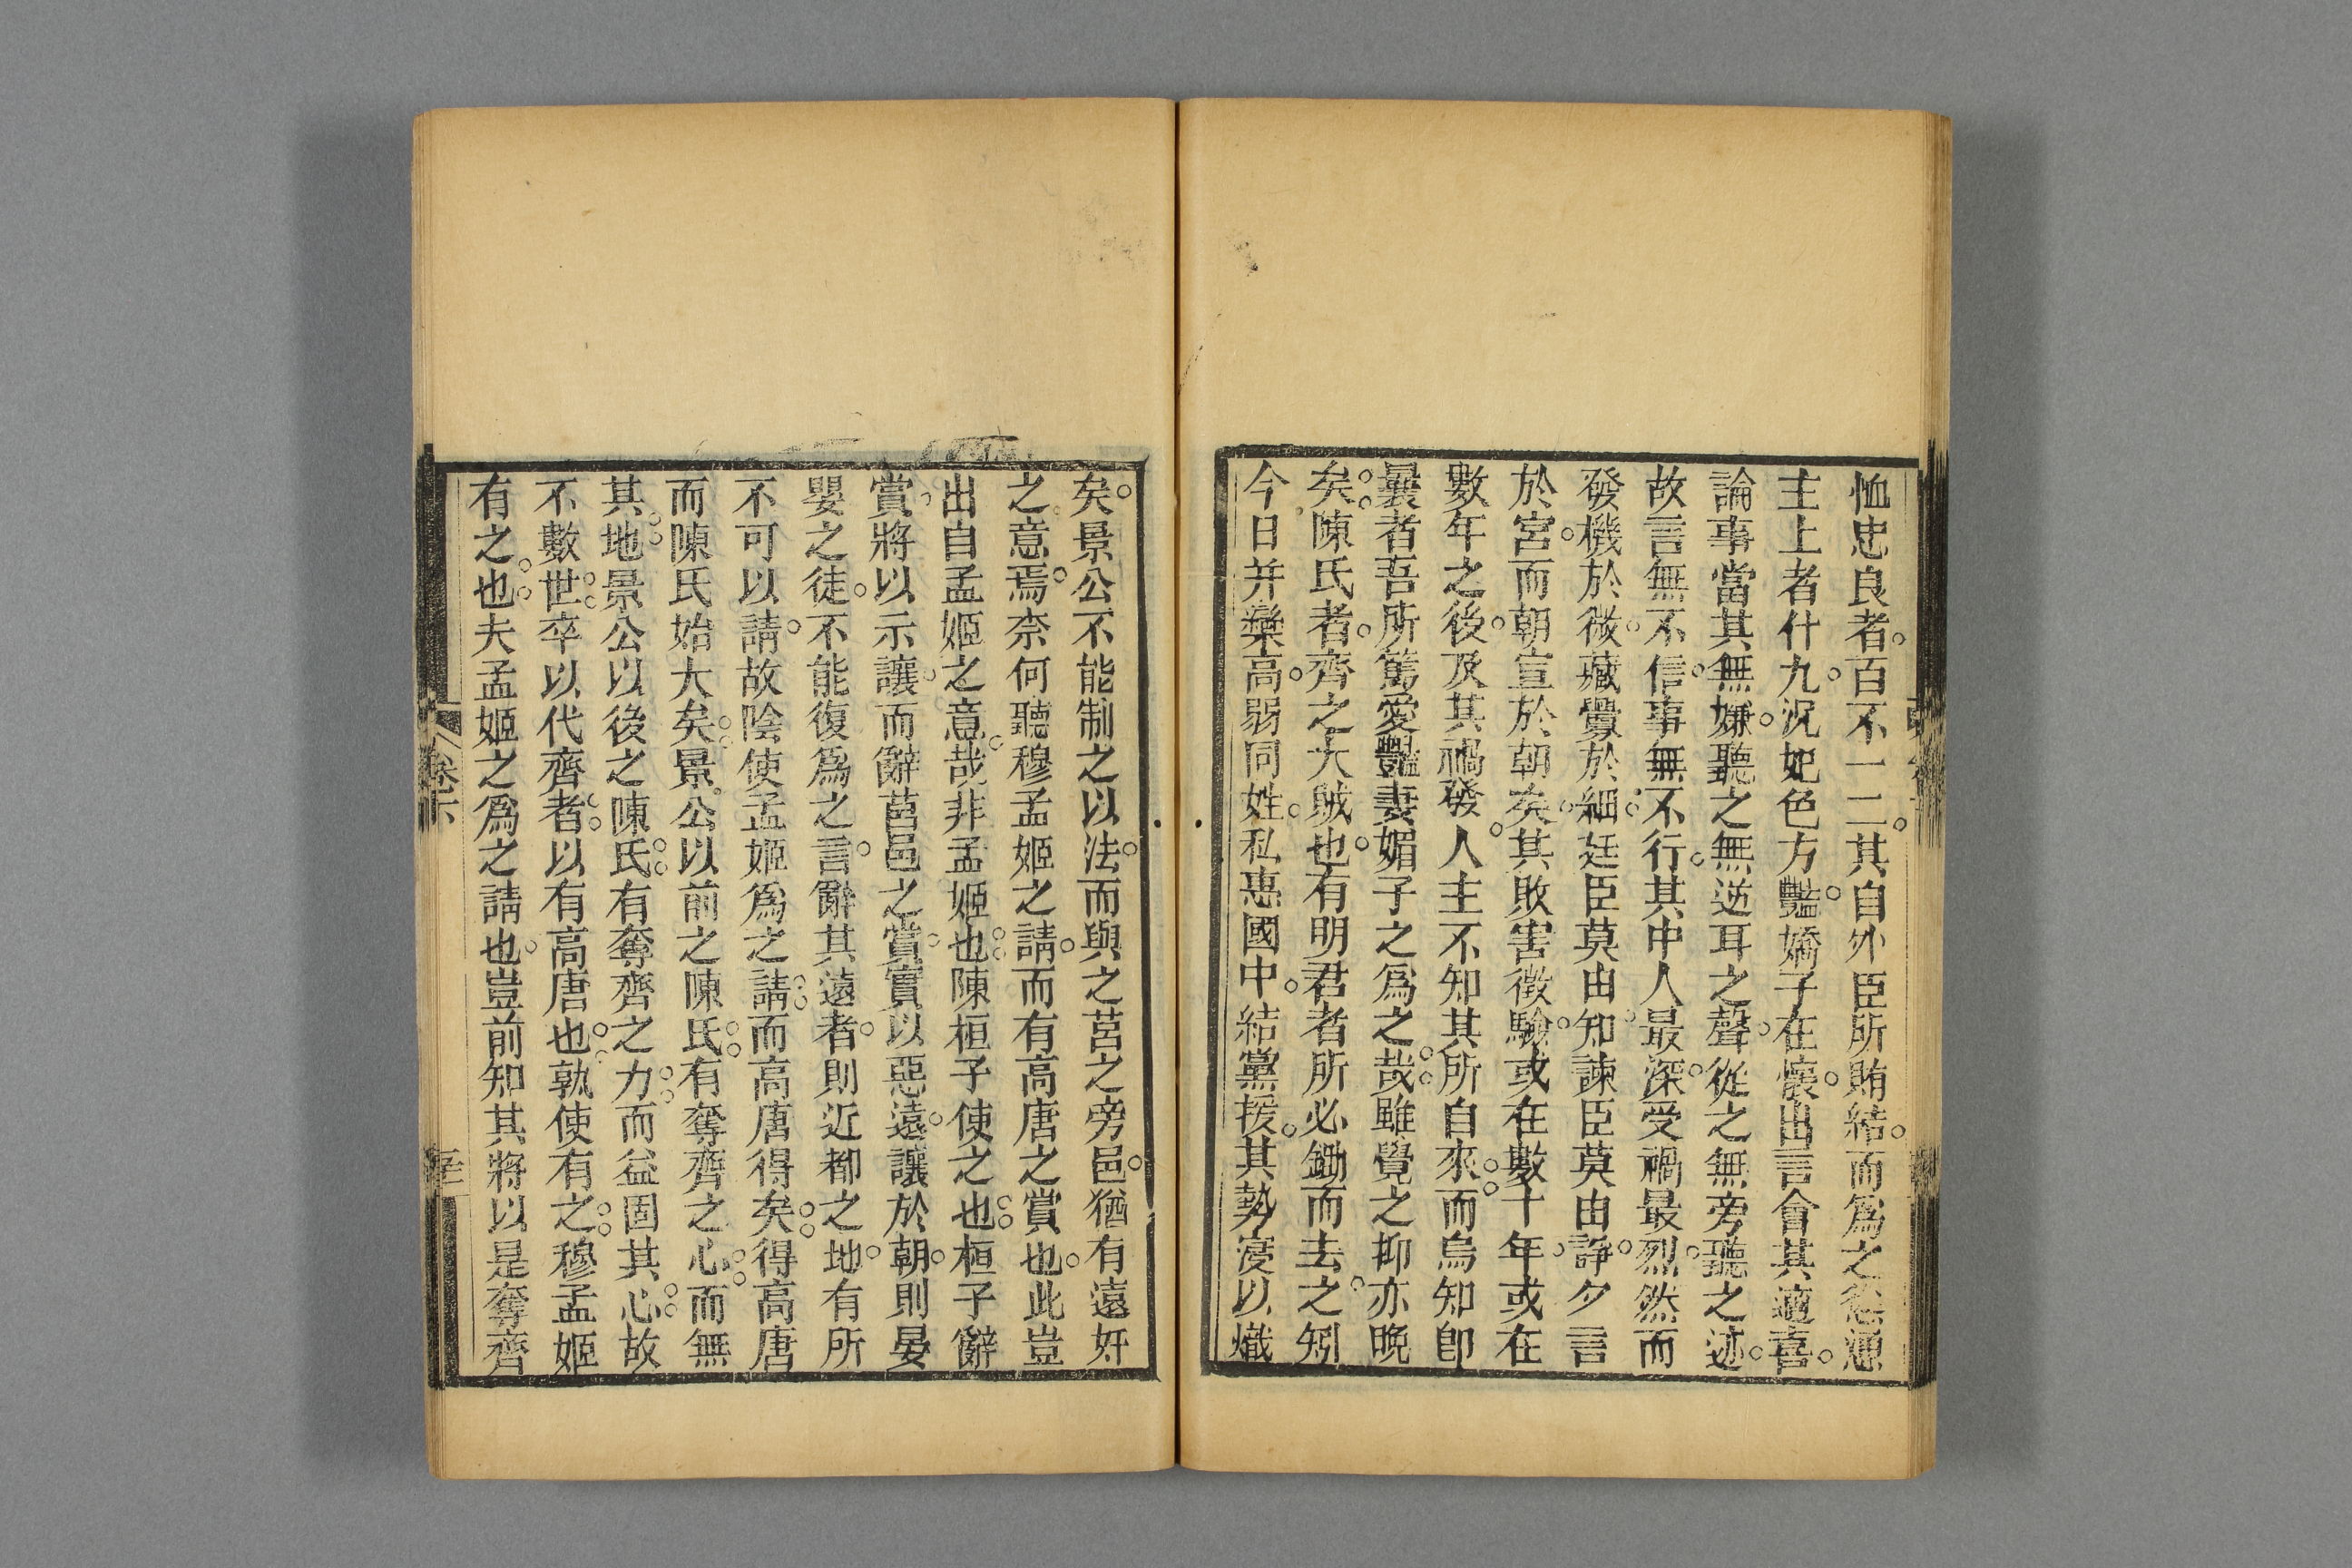 恤忠良者百不一二其自外臣所賄結而爲之慫慂
主上者什九况妃色方豔嬌子在懷出言會其適喜
論事當其無嫌聽之無逆耳之聲從之無旁聽之迹
故言無不信事無不行其中人最深受禍最烈然而
發機於微藏釁於細廷臣莫由知諫臣莫由諍夕言
於宮而朝宣於朝矣其敗害徵驗或在數十年或在
數年之後及其禍發人主不知其所自來而烏知卽
曩者吾所篤愛豔妻媚子之爲之哉雖覺之抑亦晚
矣陳氏者齊之大賊也有明君者所必鋤而去之矧
今日并欒高弱同姓私惠國中結黨援其勢寖以熾
矣景公不能制之以法而與之莒之旁邑猶有遠奸
之意焉柰何聽穆孟姬之請而有高唐之賞也此豈
出自孟姬之意哉非孟姬也陳桓子使之也桓子辭
賞將以示讓而辭莒邑之賞實以惡遠讓於朝則晏
嬰之徒不能復爲之言辭其遠者則近都之地有所
不可以請故陰使孟姬爲之請而高唐得矣得高唐
而陳氏始大矣景公以前之陳氏有奪齊之心而無
其地景公以後之陳氏有奪齊之力而益固其心故
不數世卒以代齊者以有高唐也孰使有之穆孟姬
有之也夫孟姬之爲之請也豈前知其將以是奪齊